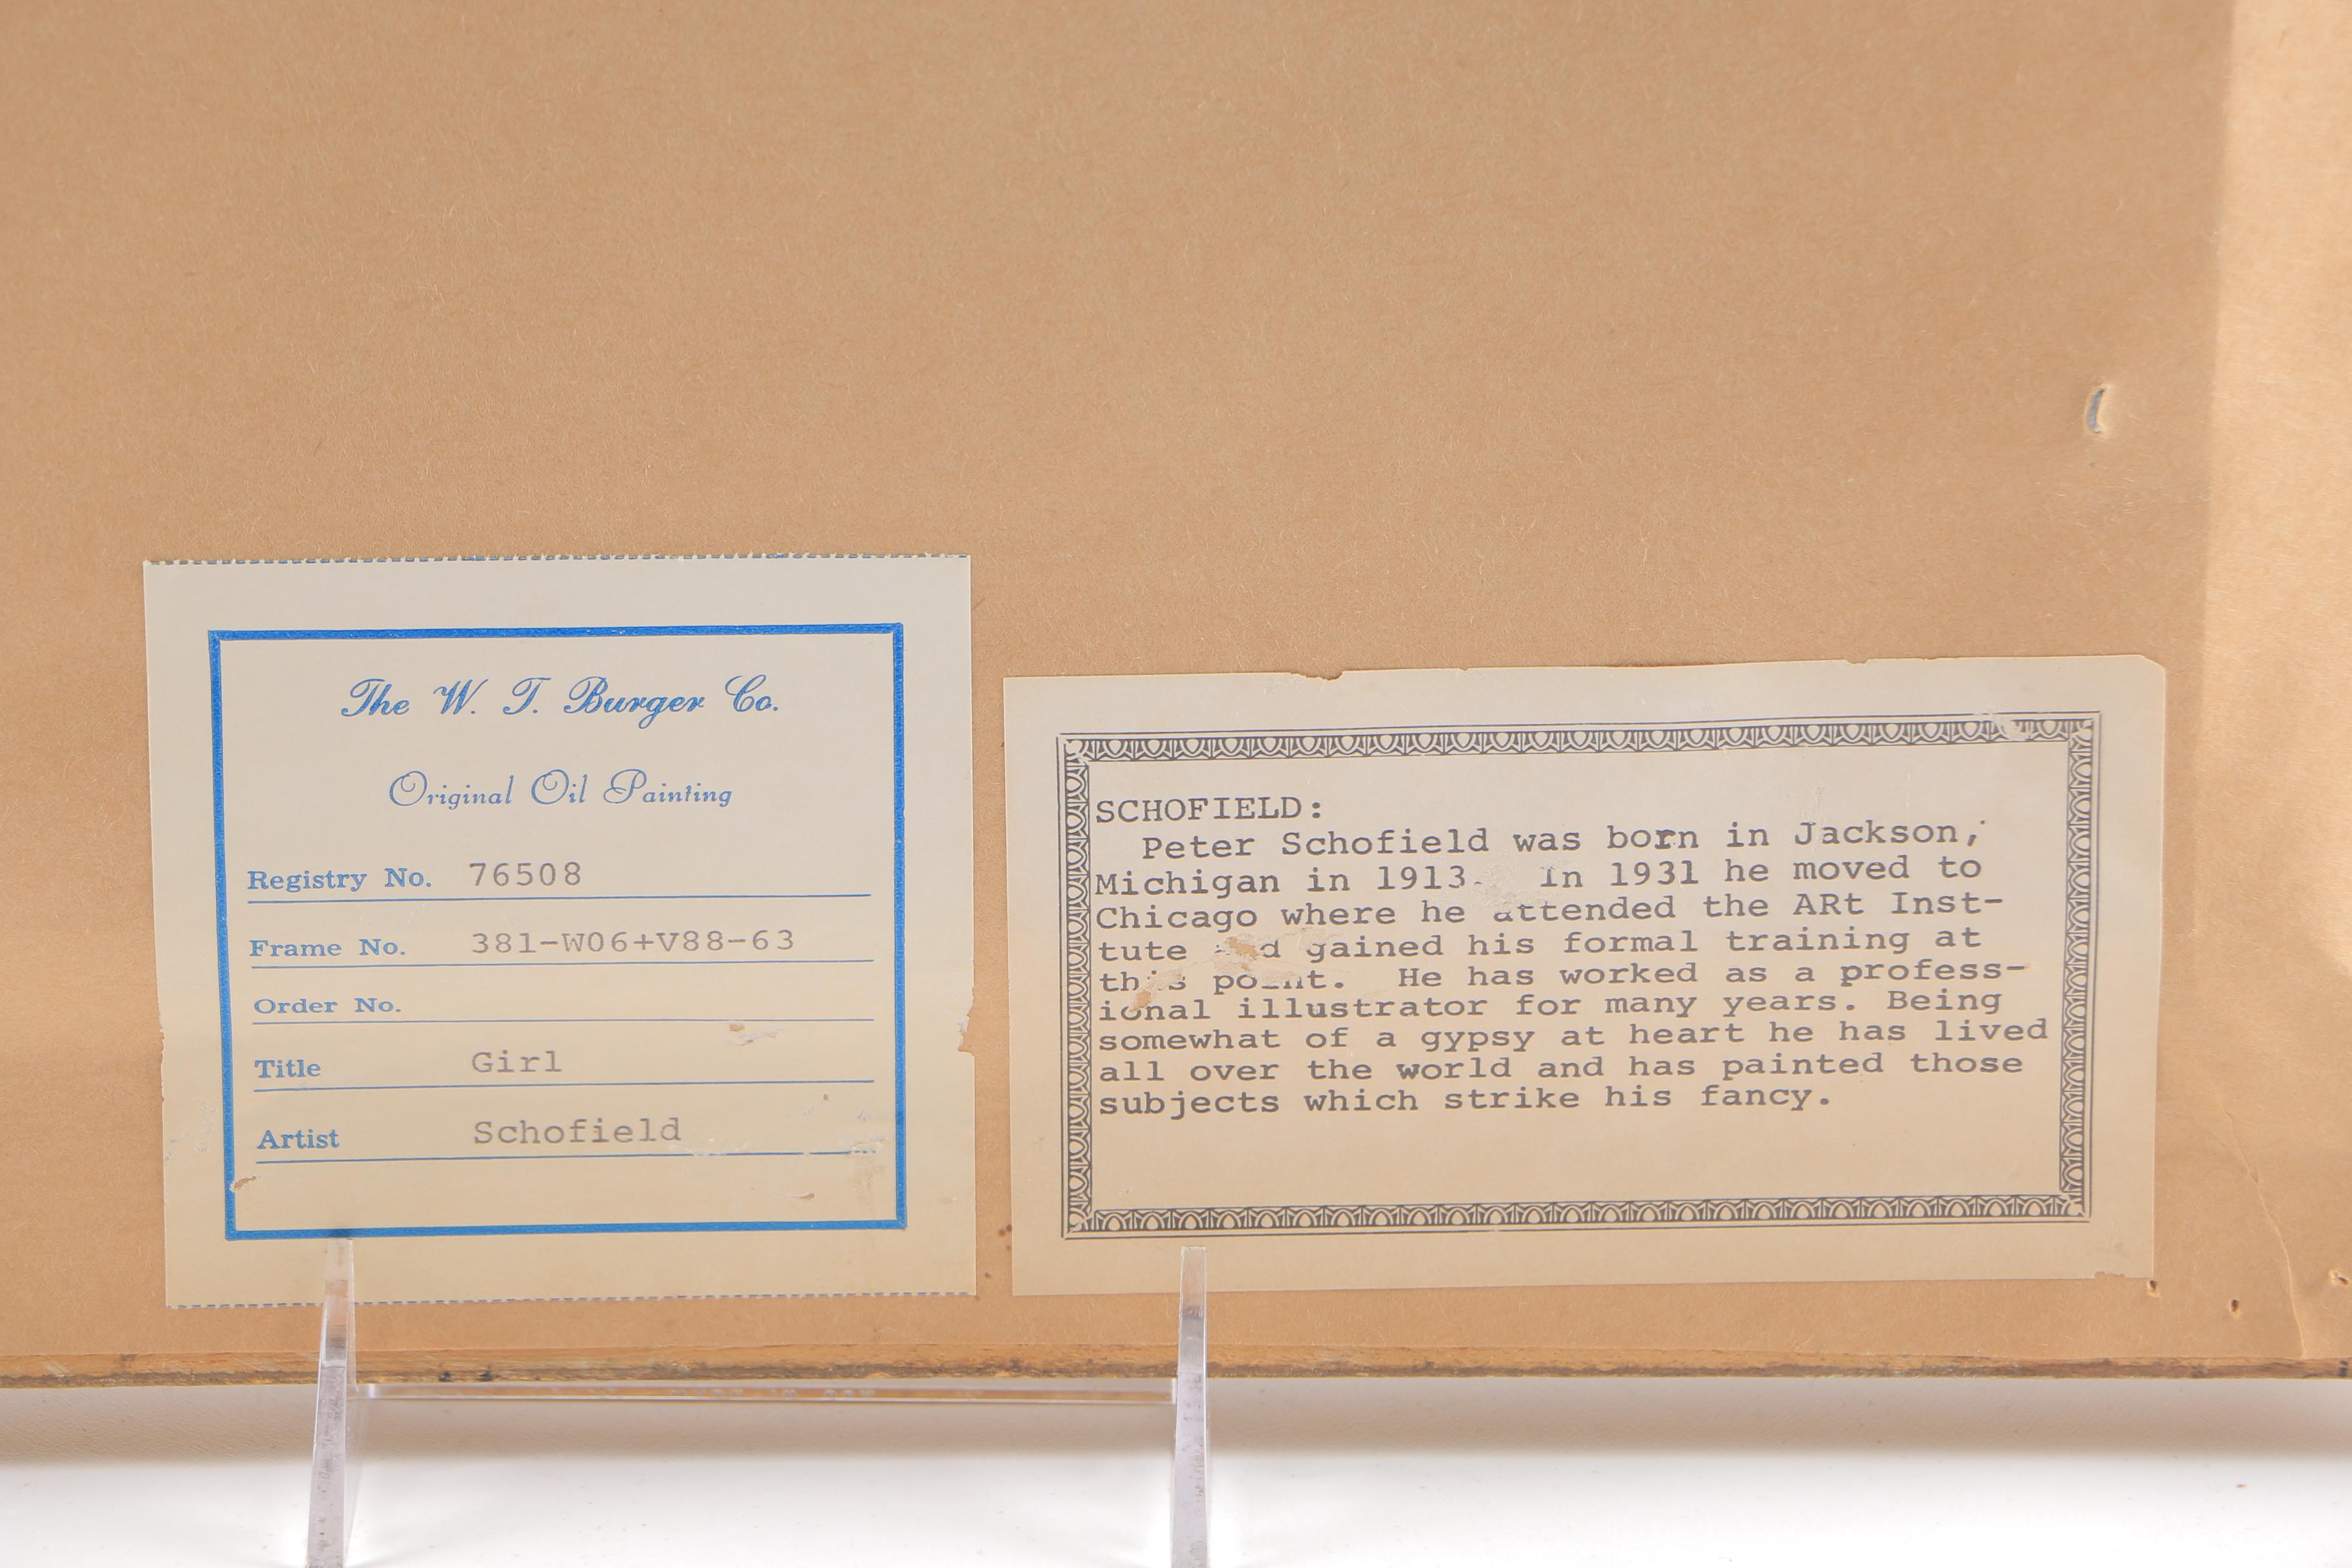 The W. T. Burger Co.
Original Oil Painting
Registry No. 76508
Frame No. 381-W06+V88-63
Order No.
Title Girl
Artist Schofield
SCHOFIELD:
Peter Schofield was born in Jackson,
Michigan in 1913. In 1931 he moved to
Chicago where he attended the ARt Inst-
tute and gained his formal training at
this point. He has worked as a profess-
ional illustrator for many years. Being
somewhat of a gypsy at heart he has lived
all over the world and has painted those
subjects which strike his fancy.